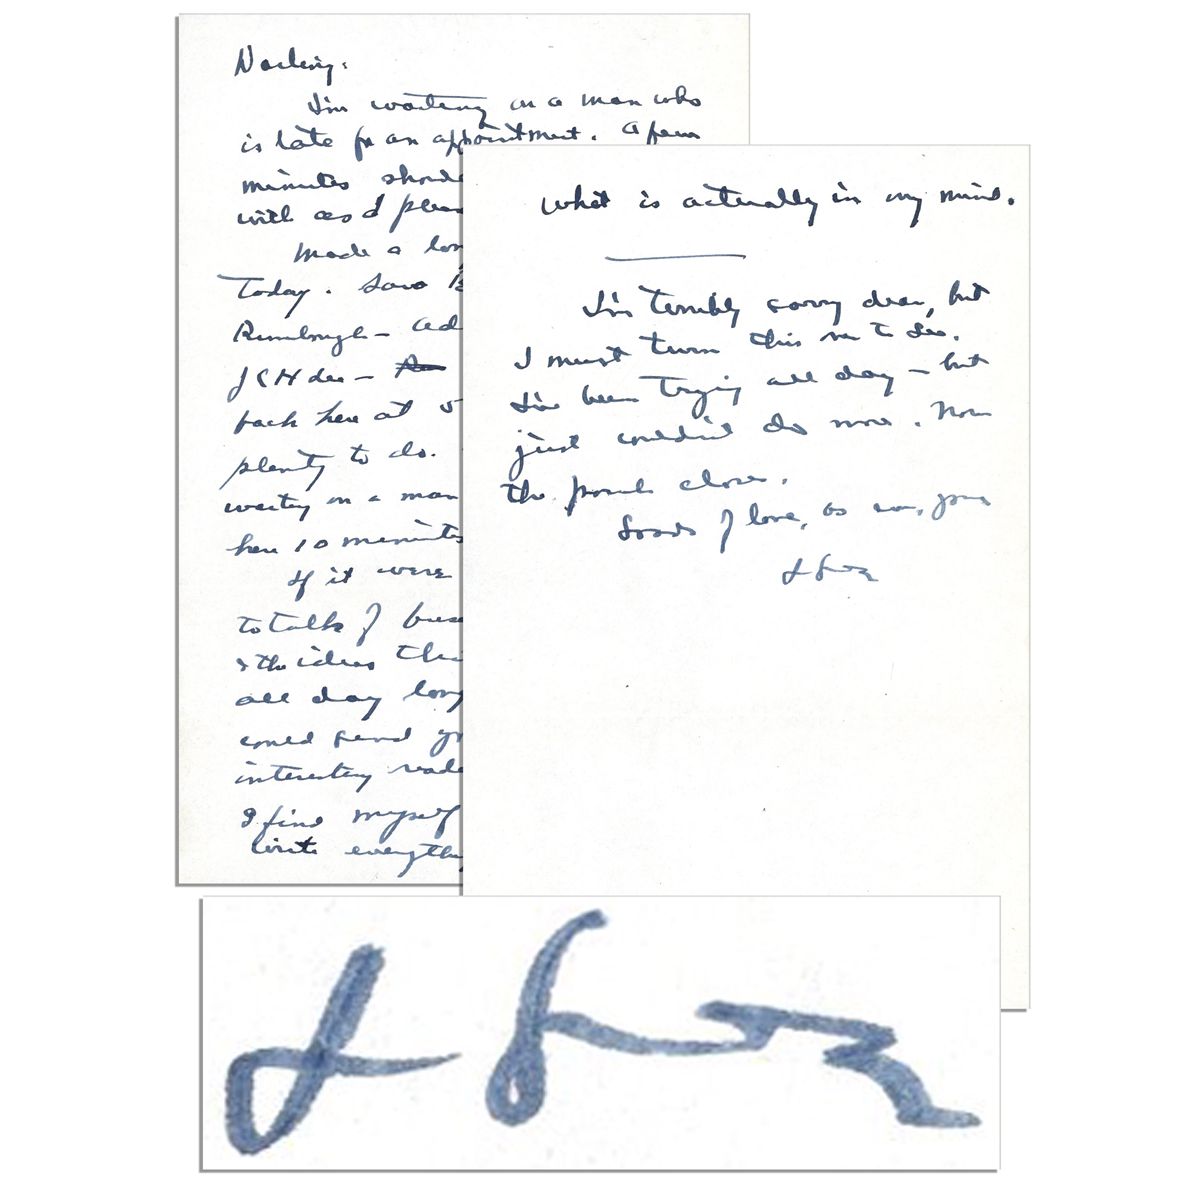 Darling:
I'm waiting on a man who
is late for an appointment. A few
minutes
with as I
Made a
Today. Saw
Rumbough - 
JCH Lee -
back here at 5
plenty to do.
waiting on a man
here 10 minutes
If it were
to talk of
& the ideas
all day long
could send
interesting
I find myself
write
what is actually in my mind.
I'm terribly sorry dear, but
I must turn this in to Lee.
I've been trying all day - but
just couldn't do more. Now
the pouch closes.
Loads of love, as ever, your